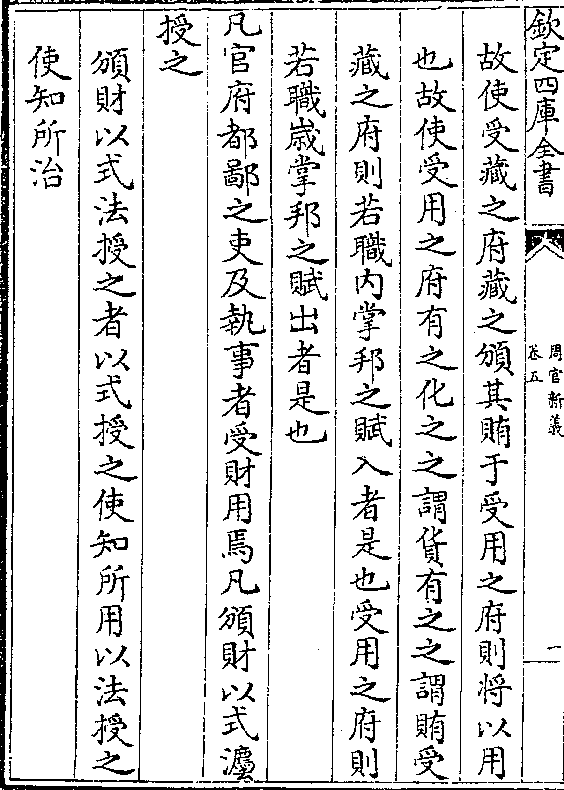 欽定四庫全書
周官新義
卷五
一
故使受藏之府藏之頒其賄于受用之府則將以用
也故使受用之府有之化之之謂貨有之之謂賄受
藏之府則若職内掌邦之賦入者是也受用之府則
若職嵗掌邦之賦出者是也
凡官府都鄙之吏及執事者受財用焉凡頒財以式灋
授之
頒財以式法授之者以式授之使知所用以法授之
使知所治